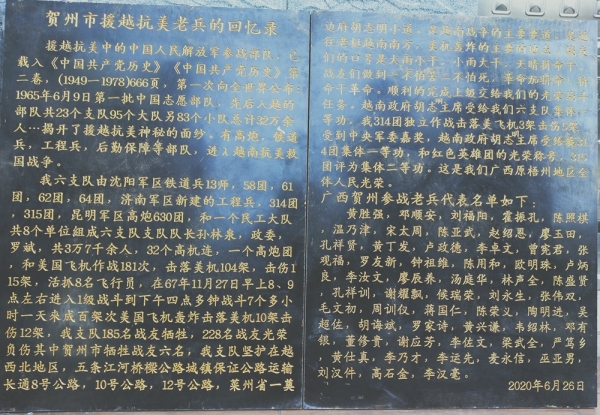 贺州市援越抗美老兵的回忆录
援越抗美中的中国人民解放军参战部队，已
载入《中国共产党历史》《中国共产党历史》第
二卷，(1949—1978)666页，第一次向全世界公布：
1965年6月9日第一批中国志愿部队，先后入越的
部队共23个支队95个大队另83个小队总计32万余
人…揭开了援越抗美神秘的面纱。有高炮、铁道
兵，工程兵，后勤保障等部队，进入越南抗美救
国战争。
我六支队由沈阳军区铁道兵13师，58团，61
团，62团，64团，济南军区新建的工程兵，314团
，315团，昆明军区高炮630团，和一个民工大队
共8个单位组成六支队支队长孙林泉，政委，
罗斌，共3万7千余人，32个高机连，一个高炮团
，和美国飞机作战181次，击落美机104架，击伤1
15架，活抓8名飞行员，在67年11月27日早上8、9
点左右进入1级战斗到下午四点多钟战斗7个多小
时一天来成百架次美国飞机轰炸击落美机10架击
伤12架，我支队185名战友牺牲，228名战友光荣
负伤其中贺州市牺牲战友六名，我支队坚护在越
西北地区，五条江河桥樑公路城镇保证公路运输
长通8号公路，10号公路，12号公路，莱州省一奠
功府胡志明小道。是越南战争的主要要道，
在老挝越南南方。美机轰炸的主要的
们的口号是天雨小干，小雨大干，天晴
战友们做到一不怕苦二不怕死，革命加拼命，拼
命干革命，顺利的完成上级交给我们的光荣
任务。越南政府胡志明主席受给我们六支队集体一
等功，我314团独立作战击落美飞机3架击伤
受到中央军委嘉奖，越南政府胡志明主席授
4团集体一等功，和红色英雄团的光荣称号，
团评为集体二等功。这是我们广西原梧州地区全
体人民光荣。
广西贺州参战老兵代表名单如下：
黄胜强，邓顺安，刘福阳，霍振孔，陈照棋
，温乃津，宋太周，陈亚武，赵绍恩，廖玉田，
孔祥贤，黄丁发，卢政德，李卓文，曾宪君，张
观福，罗友新，钟祖维，陈用和，欧明珠，卢炳
良，李法文，廖辰养，汤庭华，林声全，陈盛贤
，孔祥训，谢耀飘，侯瑞荣，刘永生，张伟双，
毛文初，周训仪，蒋国仁，陈荣义，陶明进，吴
超佐，胡海斌，罗家诗，黄兴谦，韦绍林，邓有
银，董修贵，谢应芳，李佐文，梁武全，严笃乡
，黄仕真，李乃才，李运先，麦永信，巫亚男，
刘汉件，高石金，李汉毫。
2020年6月26日